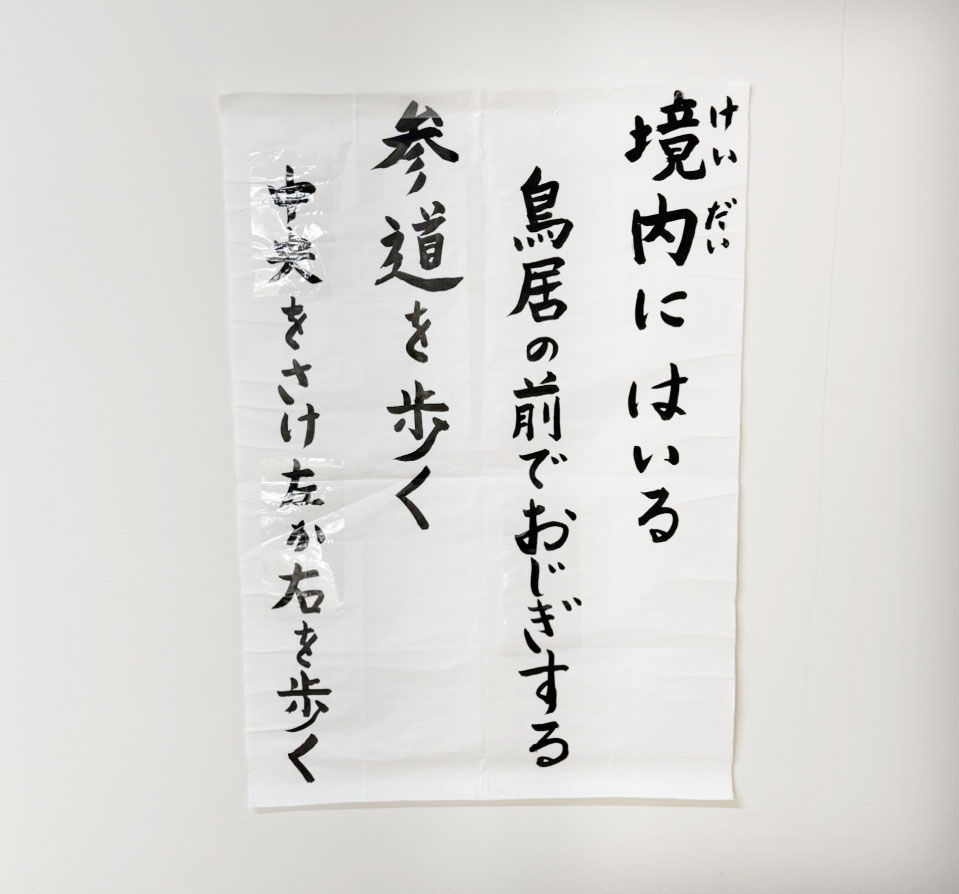 境内にはいる
けいだい
鳥居の前でおじぎする
参道を歩く
中央をさけ左か右を歩く